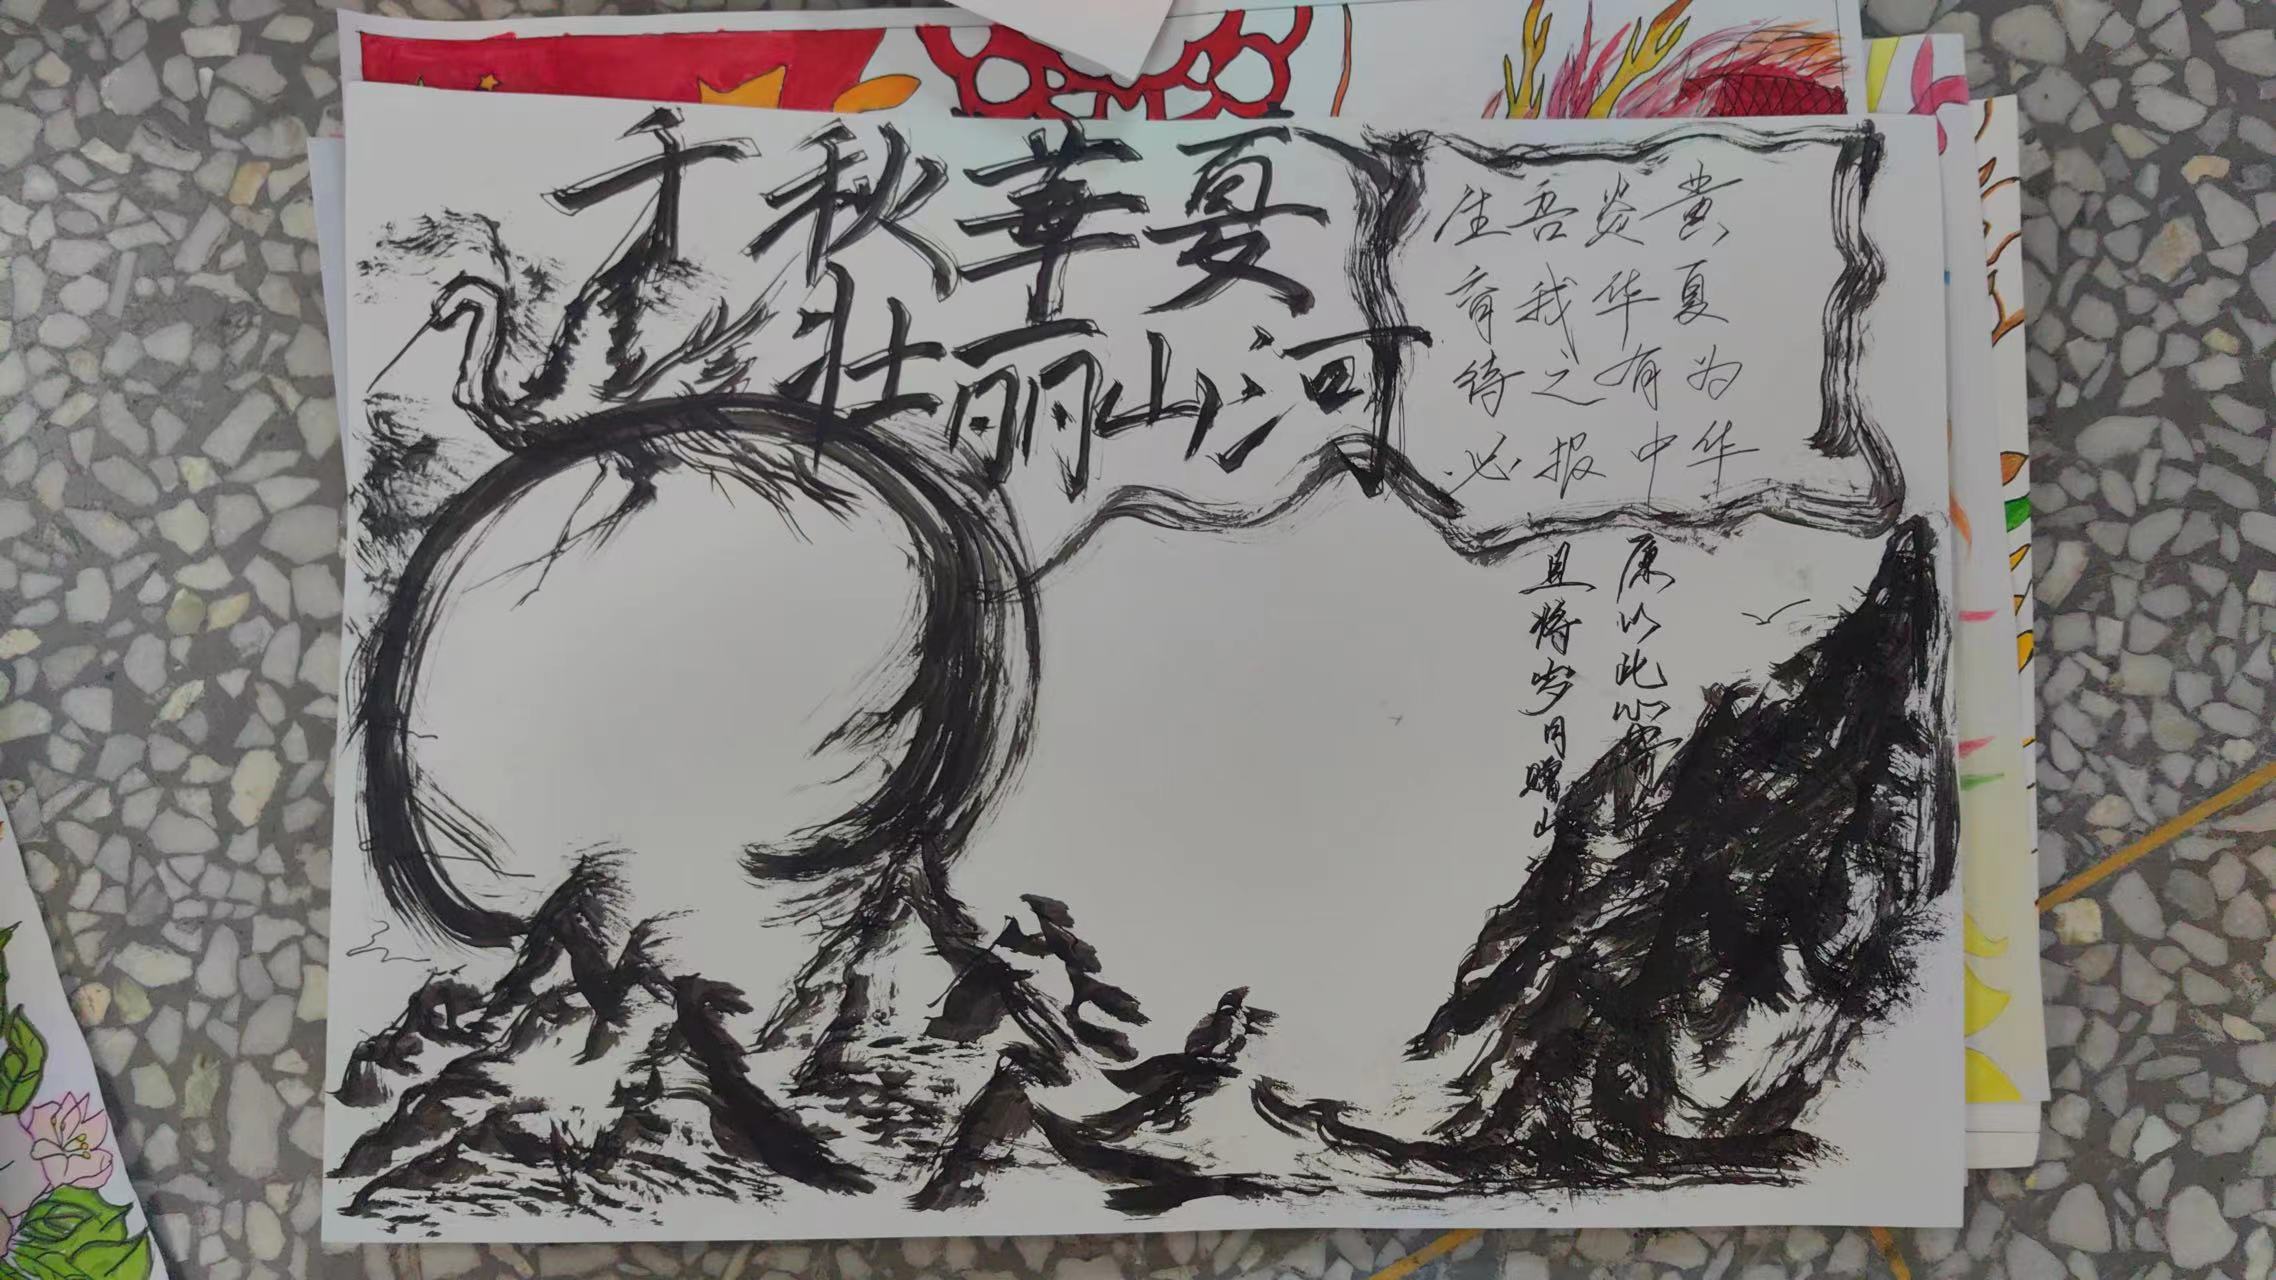 千秋華夏
壮丽山河
生吾炎黄
育我华夏
待之有为
必报中华
愿以此心寄
且将岁月赠山